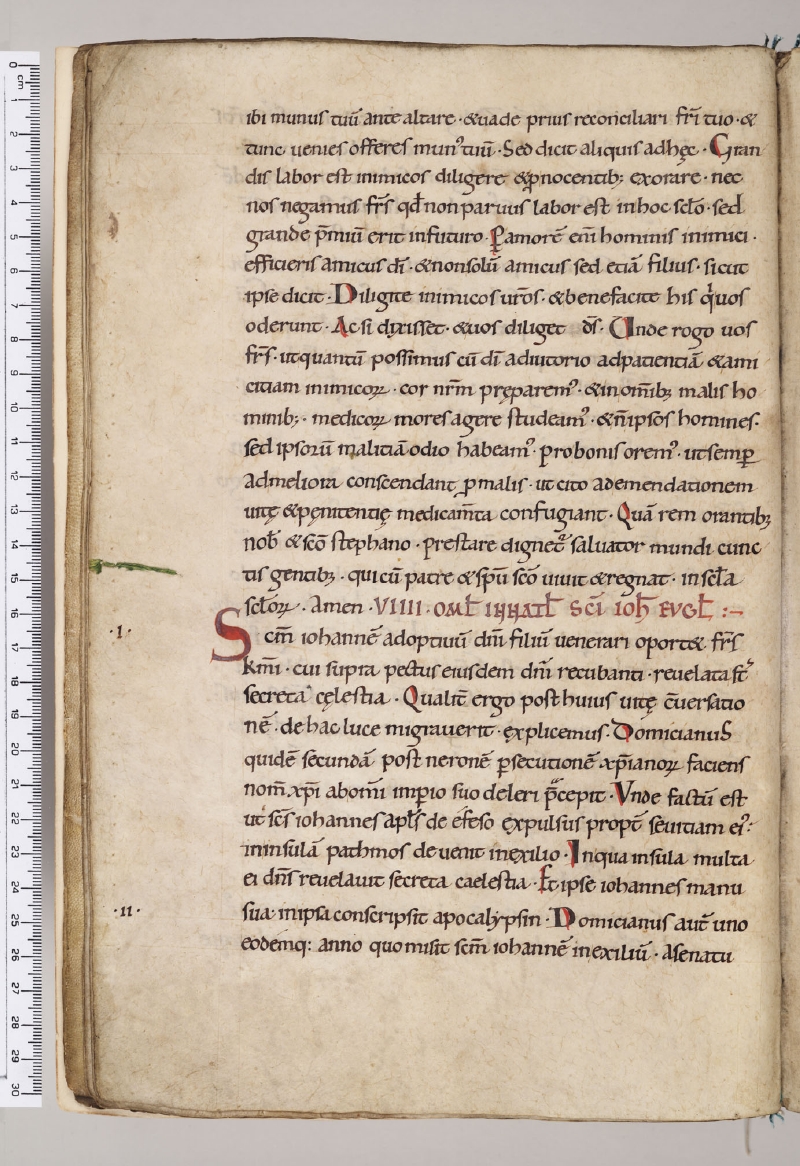 ibi munus tuū ante altare · & uade prius reconciliari fr̄i tuo · &
tunc uenies offeres mun᾽ tuū · Sed dicit aliquis ad hęc · Gran
dis labor est inimicos diligere & ꝓ nocentib; exorare · nec
nos negamus fr̄s qd̄ non paruus labor est in hoc scl̄o · sed
grande p̄miū erit in futuro · Ꝑ amorē eni hominis inimici ·
efficieris amicus dī · & non solū amicus sed etiā filius · sicut
ipse dicit · Diligite inimicos ur̄os · & benefacite his qͥ uos
oderunt · Ac si dixisset · & uos diliget d̄s · Unde rogo uos
fr̄s · ut quantū possimus cū dī adiutorio ad patientiā & ami
citiam inimicoꝝ · cor nr̄m pręparem᾽ · & in om̄ib; malis ho
minib; · medicoꝝ mores agere studeam᾽ · & n̄ ipsos homines ·
sed ipsorū malitiā odio habeam᾽ · pro bonis orem᾽ · ut semꝑ
ad meliora conscendant ꝓ malis · ut cito ad emendationem
uitę & pęnitentię medicam̄ta confugiant · Quā rem orantib;
nob̄ & sc̄o stephano · prestare dignet᾽ saluator mundi cunc
tis gentib; · qui cū patre & sp̄u sc̄o uiuit & regnat · in scl̄a
scl̄oꝝ · Amen · VIIII · OML̄ IN NATL̄ SC̄I IOH̄ EVGL̄ :~
·I· Sc̄m iohannē adoptiuū dn̄i filiū uenerari oport& fr̄s
km̄i · cui supra pectus eiusdem dn̄i recubanti · reuelata st̄
secreta cęlestia · Qualit̄ ergo post huius uitę c̄uersatio
nē · de hac luce migrauerit · explicemus · Domicianus
quidē secundā post neronē ꝑsecutionē xp̄ianoꝝ faciens
nom̄ xp̄i ab om̄i imp̄io suo deleri p̄cepit · Vnde factū est
ut sc̄s iohannes apl̄s de efeso expulsus propt̄ seuitiam ei᾽ ·
in insulā pathmos deuenit in exilio · In qua insula multa
ei dn̄s reuelauit secreta caelestia · Et ipse iohannes manu
·II· sua · in ipsa conscripsit apocalypsin · Domicianus aut̄ uno
eodemq: anno quo misit sc̄m iohannē in exiliū · A senatu